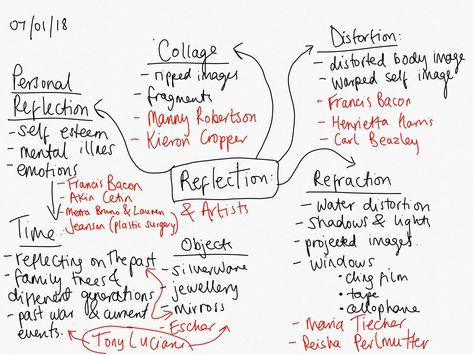 07/01/18
Collage
- ripped images
- fragments
- Manny Robertson
- Kieron Cropper
Distortion:
- distorted body image
- warped self image
- Francis Bacon
- Henrietta Harris
- Carl Beazley
Personal
Reflection
- self esteem
- mental illnes
- emotions
- Francis Bacon
- Akin Cetin
- Metra Bruno & Lauren
Jeanson (plastic surgery)
Reflection:
& Artists
Refraction
- water distortion
- shadows & lights
- projected images
- windows
• cling film
• tape
• cellophane
- Maria Tiecher
- Reisha Perlmutter
Time:
- reflecting on The past
- family trees &
different generations
- past war & current
events.
Objects
- silverware
- jewellery
- mirrors
- Escher
Tony Luciani